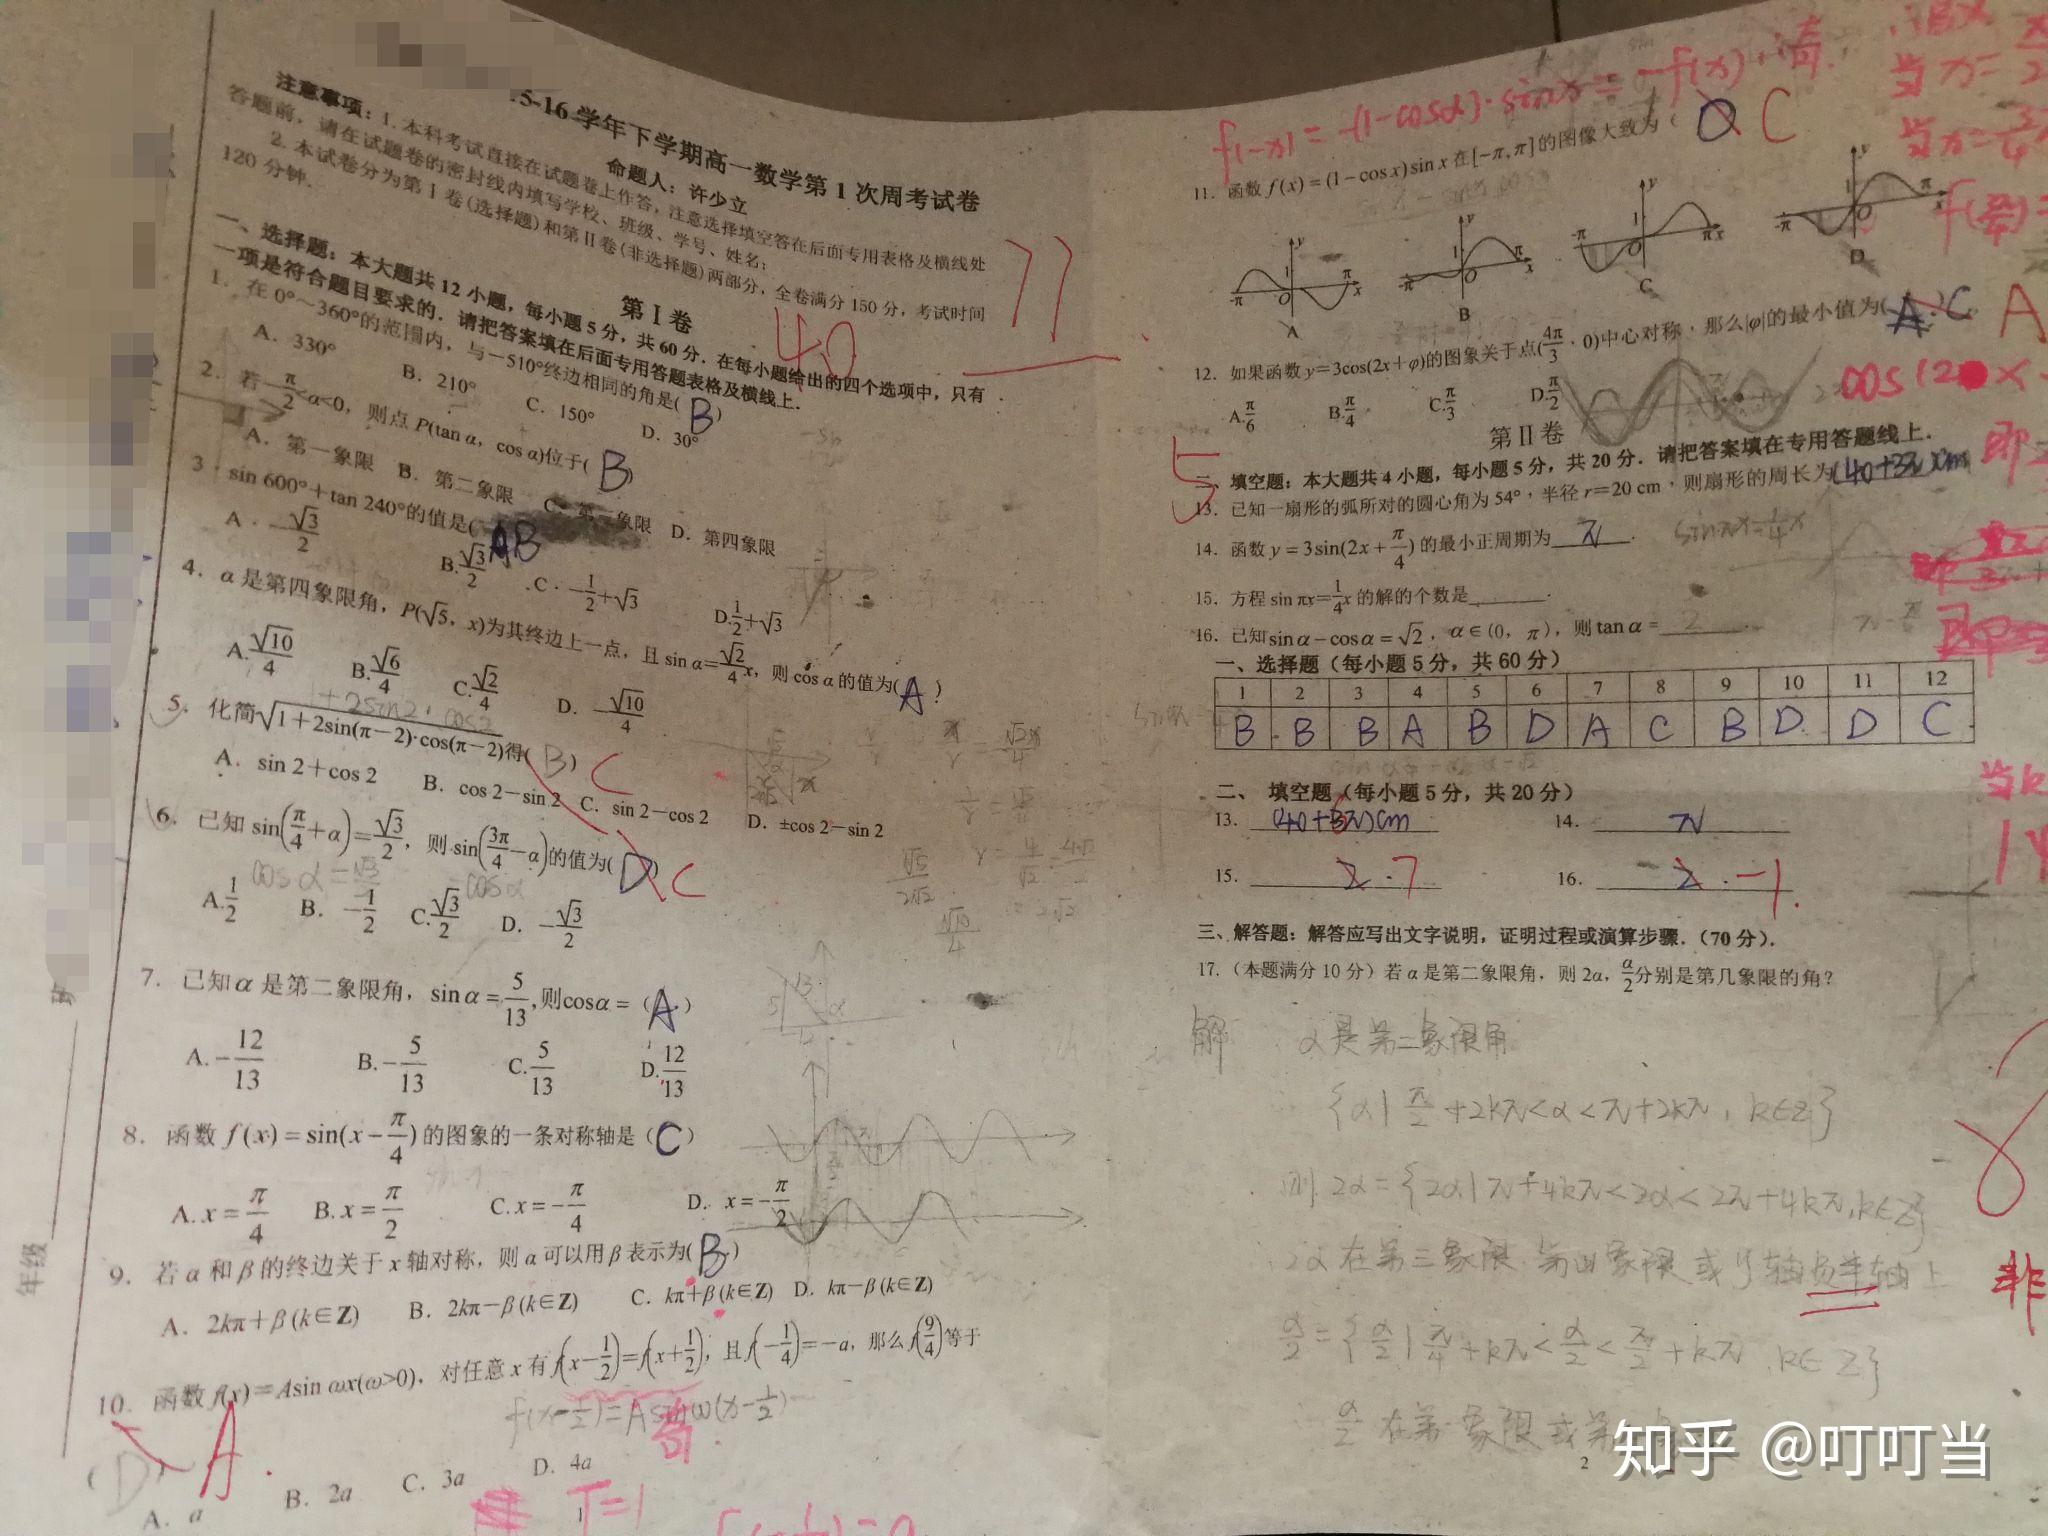 .5-16 学年下学期高一数学第 1 次周考试卷
命题人：许少立
注意事项：1. 本科考试直接在试题卷上作答，注意选择填空答在后面专用表格及横线处
答题前，请在试题卷的密封线内填写学校、班级、学号、姓名；
2. 本试卷分为第 I 卷(选择题)和第 II 卷(非选择题)两部分，全卷满分 150 分，考试时间
120 分钟.
77
第 I 卷
40
一、选择题：本大题共 12 小题，每小题 5 分，共 60 分．在每小题给出的四个选项中，只有
一项是符合题目要求的．请把答案填在后面专用答题表格及横线上．
1. 在 0°～360°的范围内，与－510°终边相同的角是( B )
A．330° B．210° C．150° D．30°
2. 若－π/2<α<0，则点 P(tan α，cos α)位于( B )
A．第一象限 B．第二象限 C．第三象限 D．第四象限
3．sin 600°＋tan 240°的值是( AB
A．－√3/2 B.√3/2 C．－1/2＋√3 D.1/2＋√3
4. α 是第四象限角，P(√5，x)为其终边上一点，且 sin α＝√2/4 x，则 cos α 的值为( A )
A.√10/4 B.√6/4 C.√2/4 D．－√10/4
5. 化简√1＋2sin(π－2)·cos(π－2)得( B ) C
A．sin 2＋cos 2 B．cos 2－sin 2 C．sin 2－cos 2 D．±cos 2－sin 2
6. 已知 sin(π/4＋α)＝√3/2，则 sin(3π/4－α)的值为( D ) C
A.1/2 B．－1/2 C.√3/2 D．－√3/2
7. 已知 α 是第二象限角，sin α = 5/13，则 cos α =（ A ）
A. －12/13 B. －5/13 C. 5/13 D. 12/13
8. 函数 f(x) = sin(x－π/4) 的图象的一条对称轴是（ C ）
A. x = π/4 B. x = π/2 C. x = －π/4 D. x = －π/2
9. 若 α 和 β 的终边关于 x 轴对称，则 α 可以用 β 表示为( B )
A．2kπ＋β (k∈Z) B．2kπ－β (k∈Z) C．kπ＋β (k∈Z) D．kπ－β (k∈Z)
10. 函数 f(x)＝Asin ωx(ω>0)，对任意 x 有 f(x－1/2)＝f(x＋1/2)，且 f(－1/4)＝－a，那么 f(9/4)等于
f(x-1/2)=A sin ω(x-1/2)
( D ) A
A．a B．2a C．3a D．4a
T=1
1
f(-x) = -(1-cosx)·sinx = -f(x)
11. 函数 f(x) = (1－cos x)sin x 在[－π,π]的图像大致为（ D C
A B C D
12. 如果函数 y＝3cos(2x＋φ)的图象关于点(4π/3，0)中心对称，那么|φ|的最小值为( A ) C A
A.π/6 B.π/4 C.π/3 D.π/2
第 II 卷
5
二、填空题：本大题共 4 小题，每小题 5 分，共 20 分．请把答案填在专用答题线上．
13. 已知一扇形的弧所对的圆心角为 54°，半径 r＝20 cm，则扇形的周长为(40+3π)cm
14. 函数 y = 3sin(2x＋π/4) 的最小正周期为 π .
15. 方程 sin πx＝1/4 x 的解的个数是 .
sinπx=1/4x
16. 已知 sin α－cos α = √2，α∈(0，π)，则 tan α = 2
一、选择题（每小题 5 分，共 60 分）
1 2 3 4 5 6 7 8 9 10 11 12
B B B A B D A C B D D C
二、 填空题（每小题 5 分，共 20 分）
13. (40+3π)cm 6 14. π
15. 2 7 16. 2 -1
三、解答题：解答应写出文字说明，证明过程或演算步骤．（70 分）．
17.（本题满分 10 分）若 α 是第二象限角，则 2α，α/2 分别是第几象限的角？
解 α是第二象限角
{α| π/2+2kπ<α<π+2kπ, k∈Z}
则 2α={2α|π+4kπ<2α<2π+4kπ,k∈Z}
2α在第三象限 第四象限 或 y轴负半轴上
非
α/2={α/2|π/4+kπ<α/2<π/2+kπ, k∈Z}
α/2 在第一象限 或第
2
年级
知乎 @叮叮当